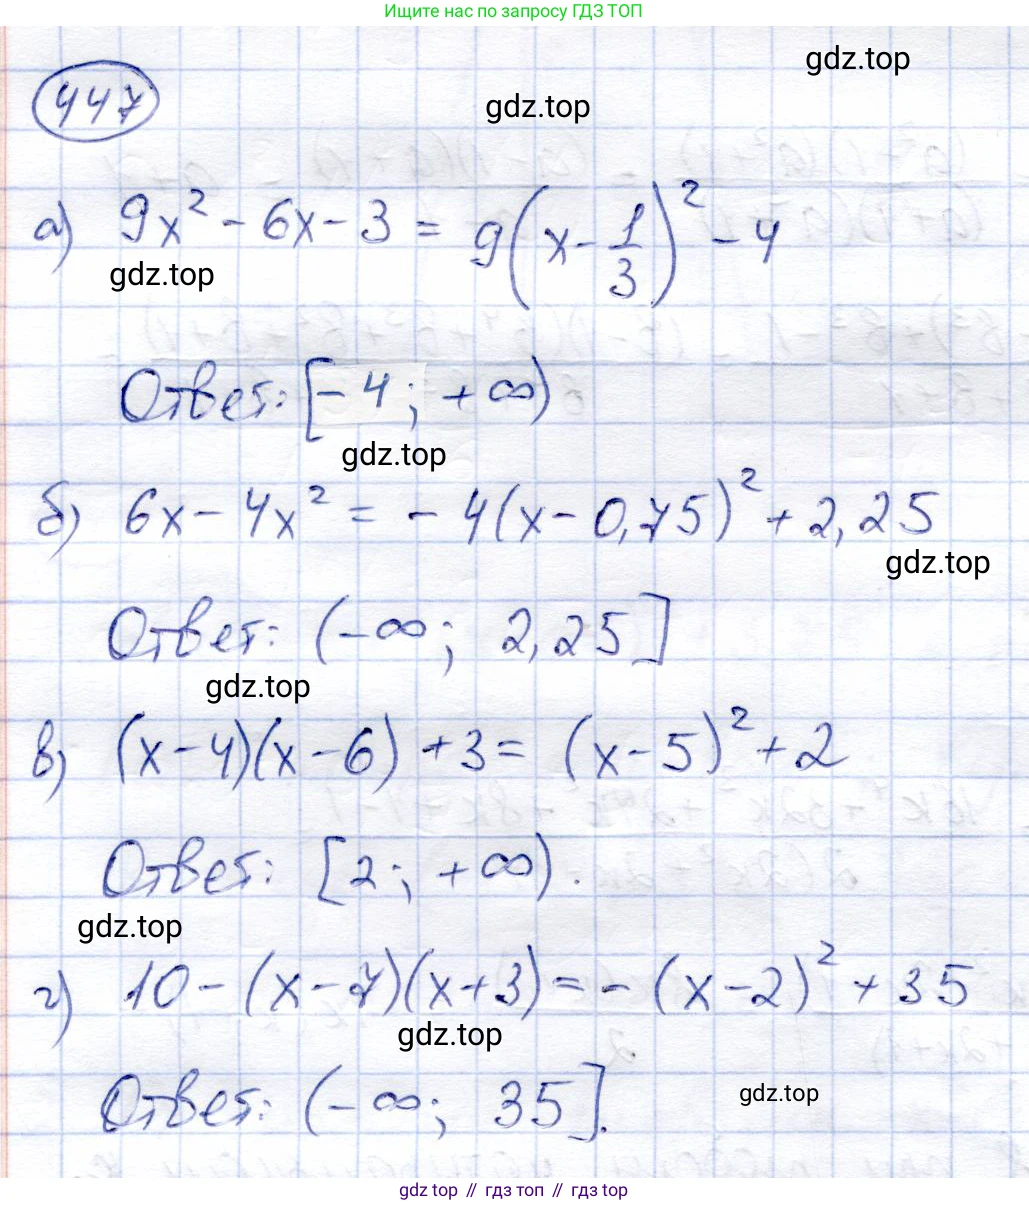 Ищите нас по запросу ГДЗ ТОП
gdz.top
447
gdz.top
а) 9x² - 6x - 3 = 9(x - 1/3)² - 4
gdz.top
Ответ: [-4; +∞)
gdz.top
б) 6x - 4x² = -4(x - 0,75)² + 2,25
gdz.top
Ответ: (-∞; 2,25]
gdz.top
в) (x-4)(x-6) + 3 = (x-5)² + 2
Ответ: [2; +∞).
gdz.top
г) 10 - (x-7)(x+3) = -(x-2)² + 35
gdz.top
Ответ: (-∞; 35].
gdz.top
gdz top // гдз топ // gdz top